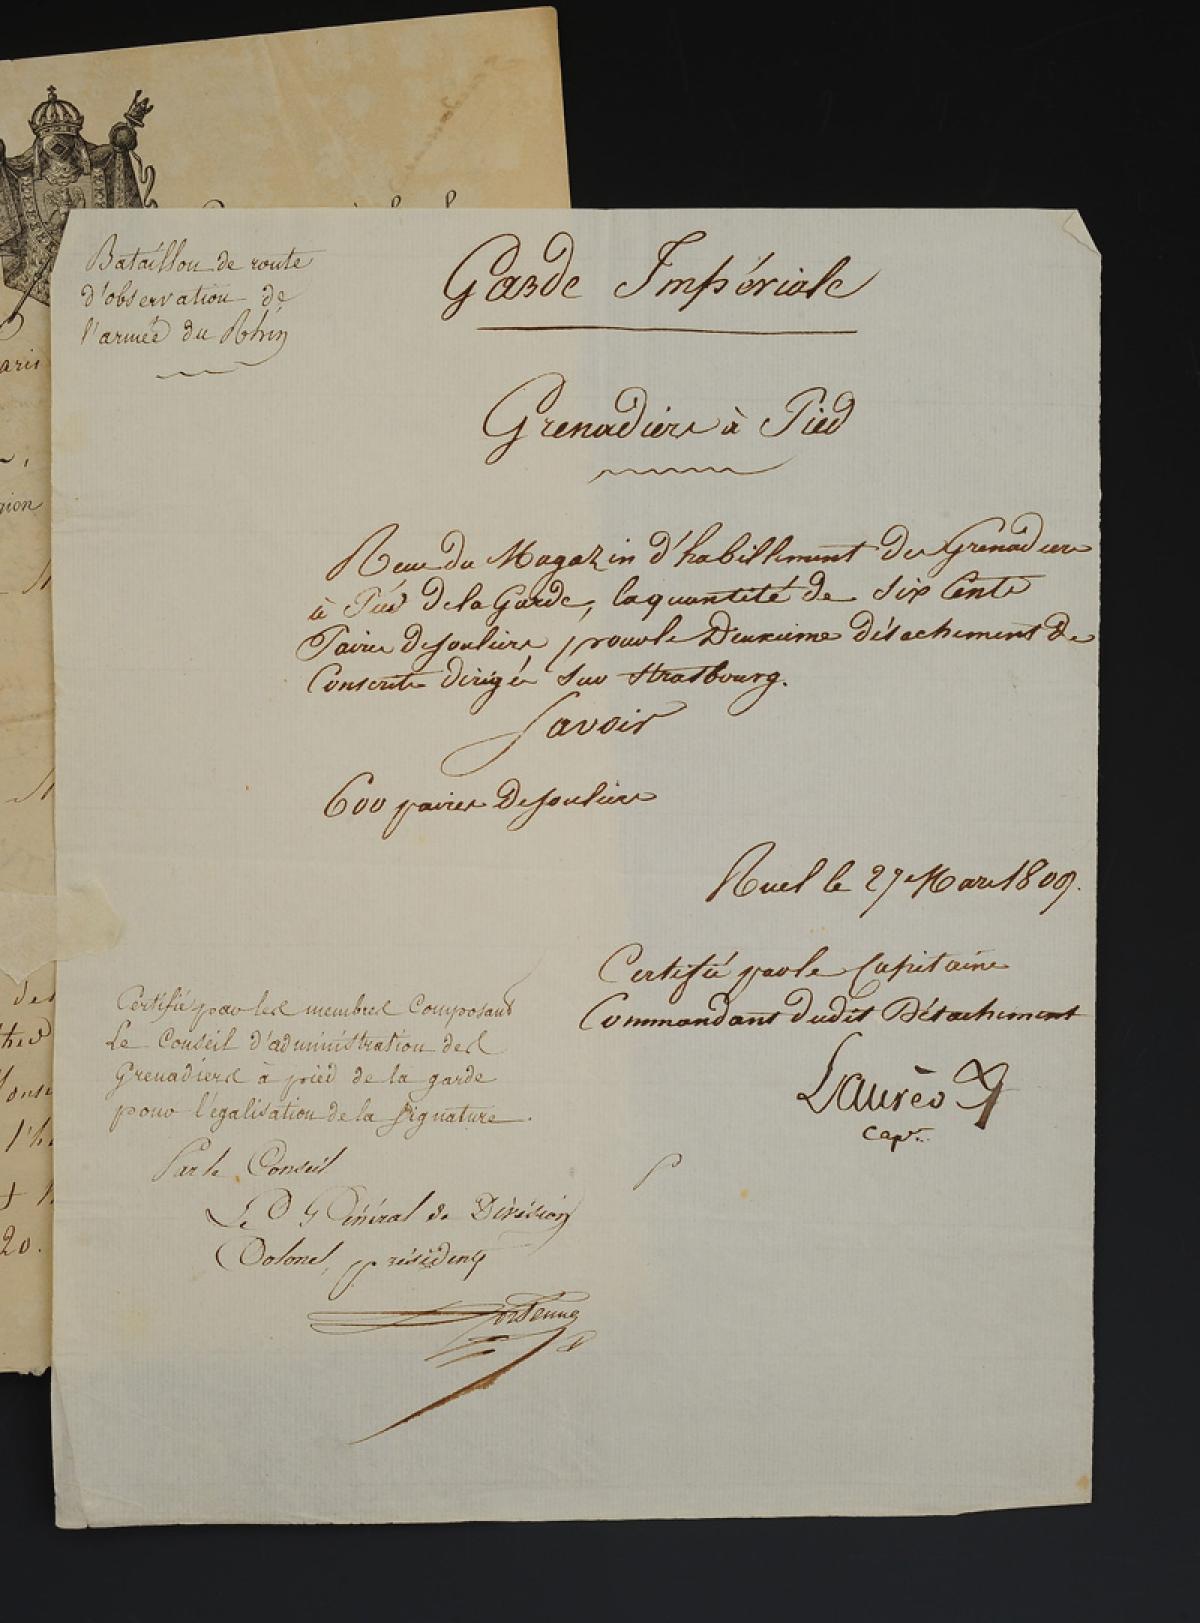 Bataillon de route
d'observation de
l'armée du Rhin
Garde Impériale
Grenadiers à Pied
Reçu du Magazin d'habillement des Grenadiers
à Pied de la Garde, la quantité de Six Cents
Paires de souliers pour le Deuxième détachement de
Conscrits dirigés sur Strasbourg.
Savoir
600 paires de souliers
Ruel le 27 Mars 1809.
Certifié par le Capitaine
Commandant dudit Détachement
Laurède
Cape
Certifié par les membres Composant
Le Conseil d'administration des
Grenadiers à pied de la garde
pour l'égalisation de la signature.
Par le Conseil
Le Général de Division
Colonel, président
Dorsenne
aris
gion
des
l'h
20.